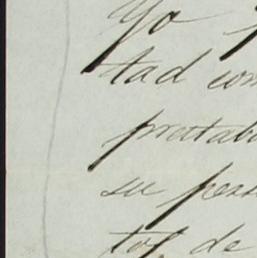 Yo
tad com
prottaba
su pers
tos, de